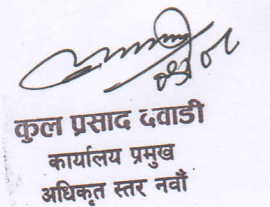 कुल प्रसाद दवाडी
कार्यालय प्रमुख
अधिकृत स्तर नवौं